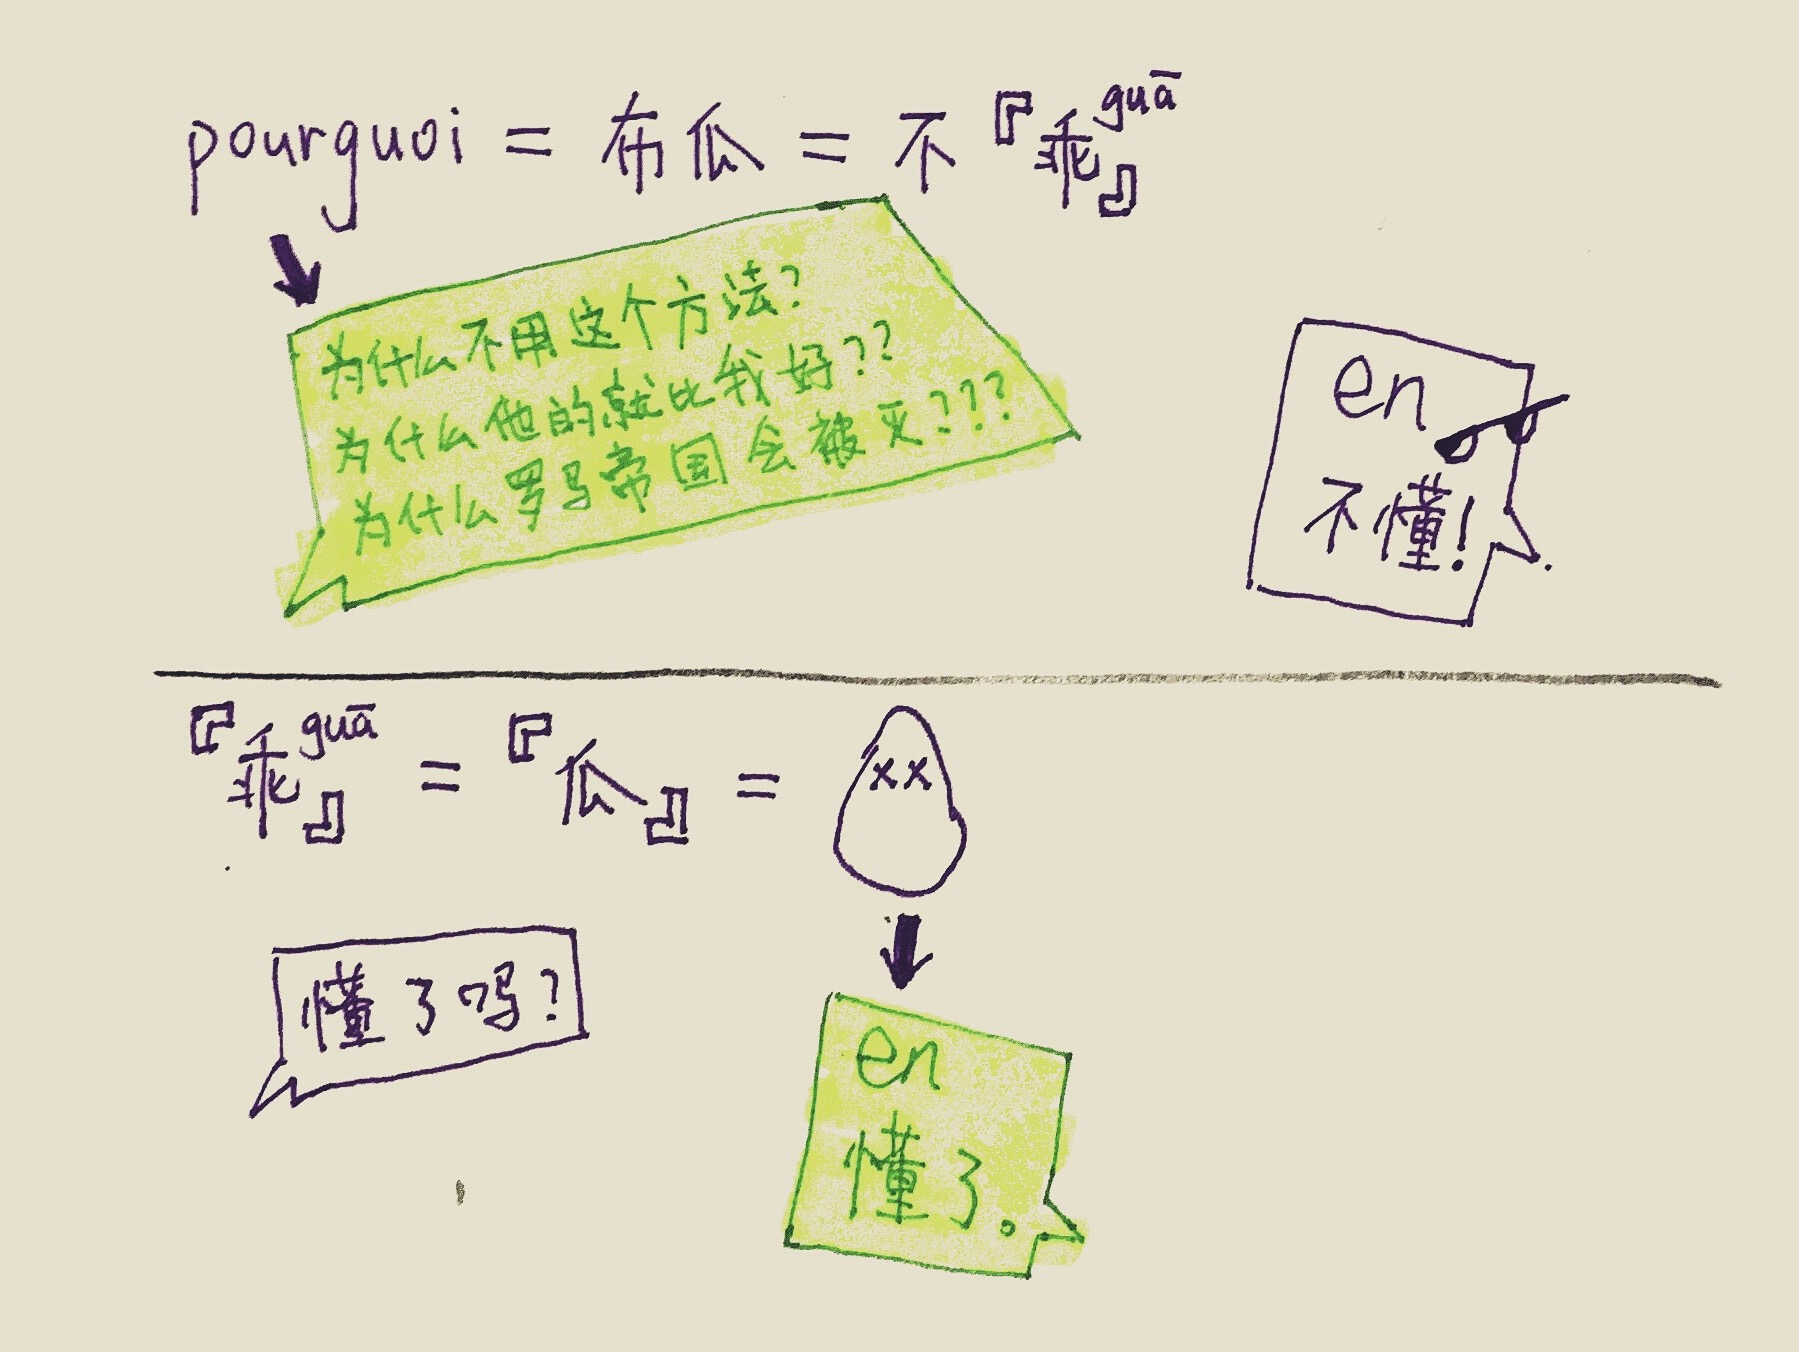 pourquoi = 布瓜 = 不『乖guā』
为什么不用这个方法?
为什么他的就比我好??
为什么罗马帝国会被灭???
en
不懂!
『乖guā』=『瓜』=
xx
懂了吗?
en
懂了。